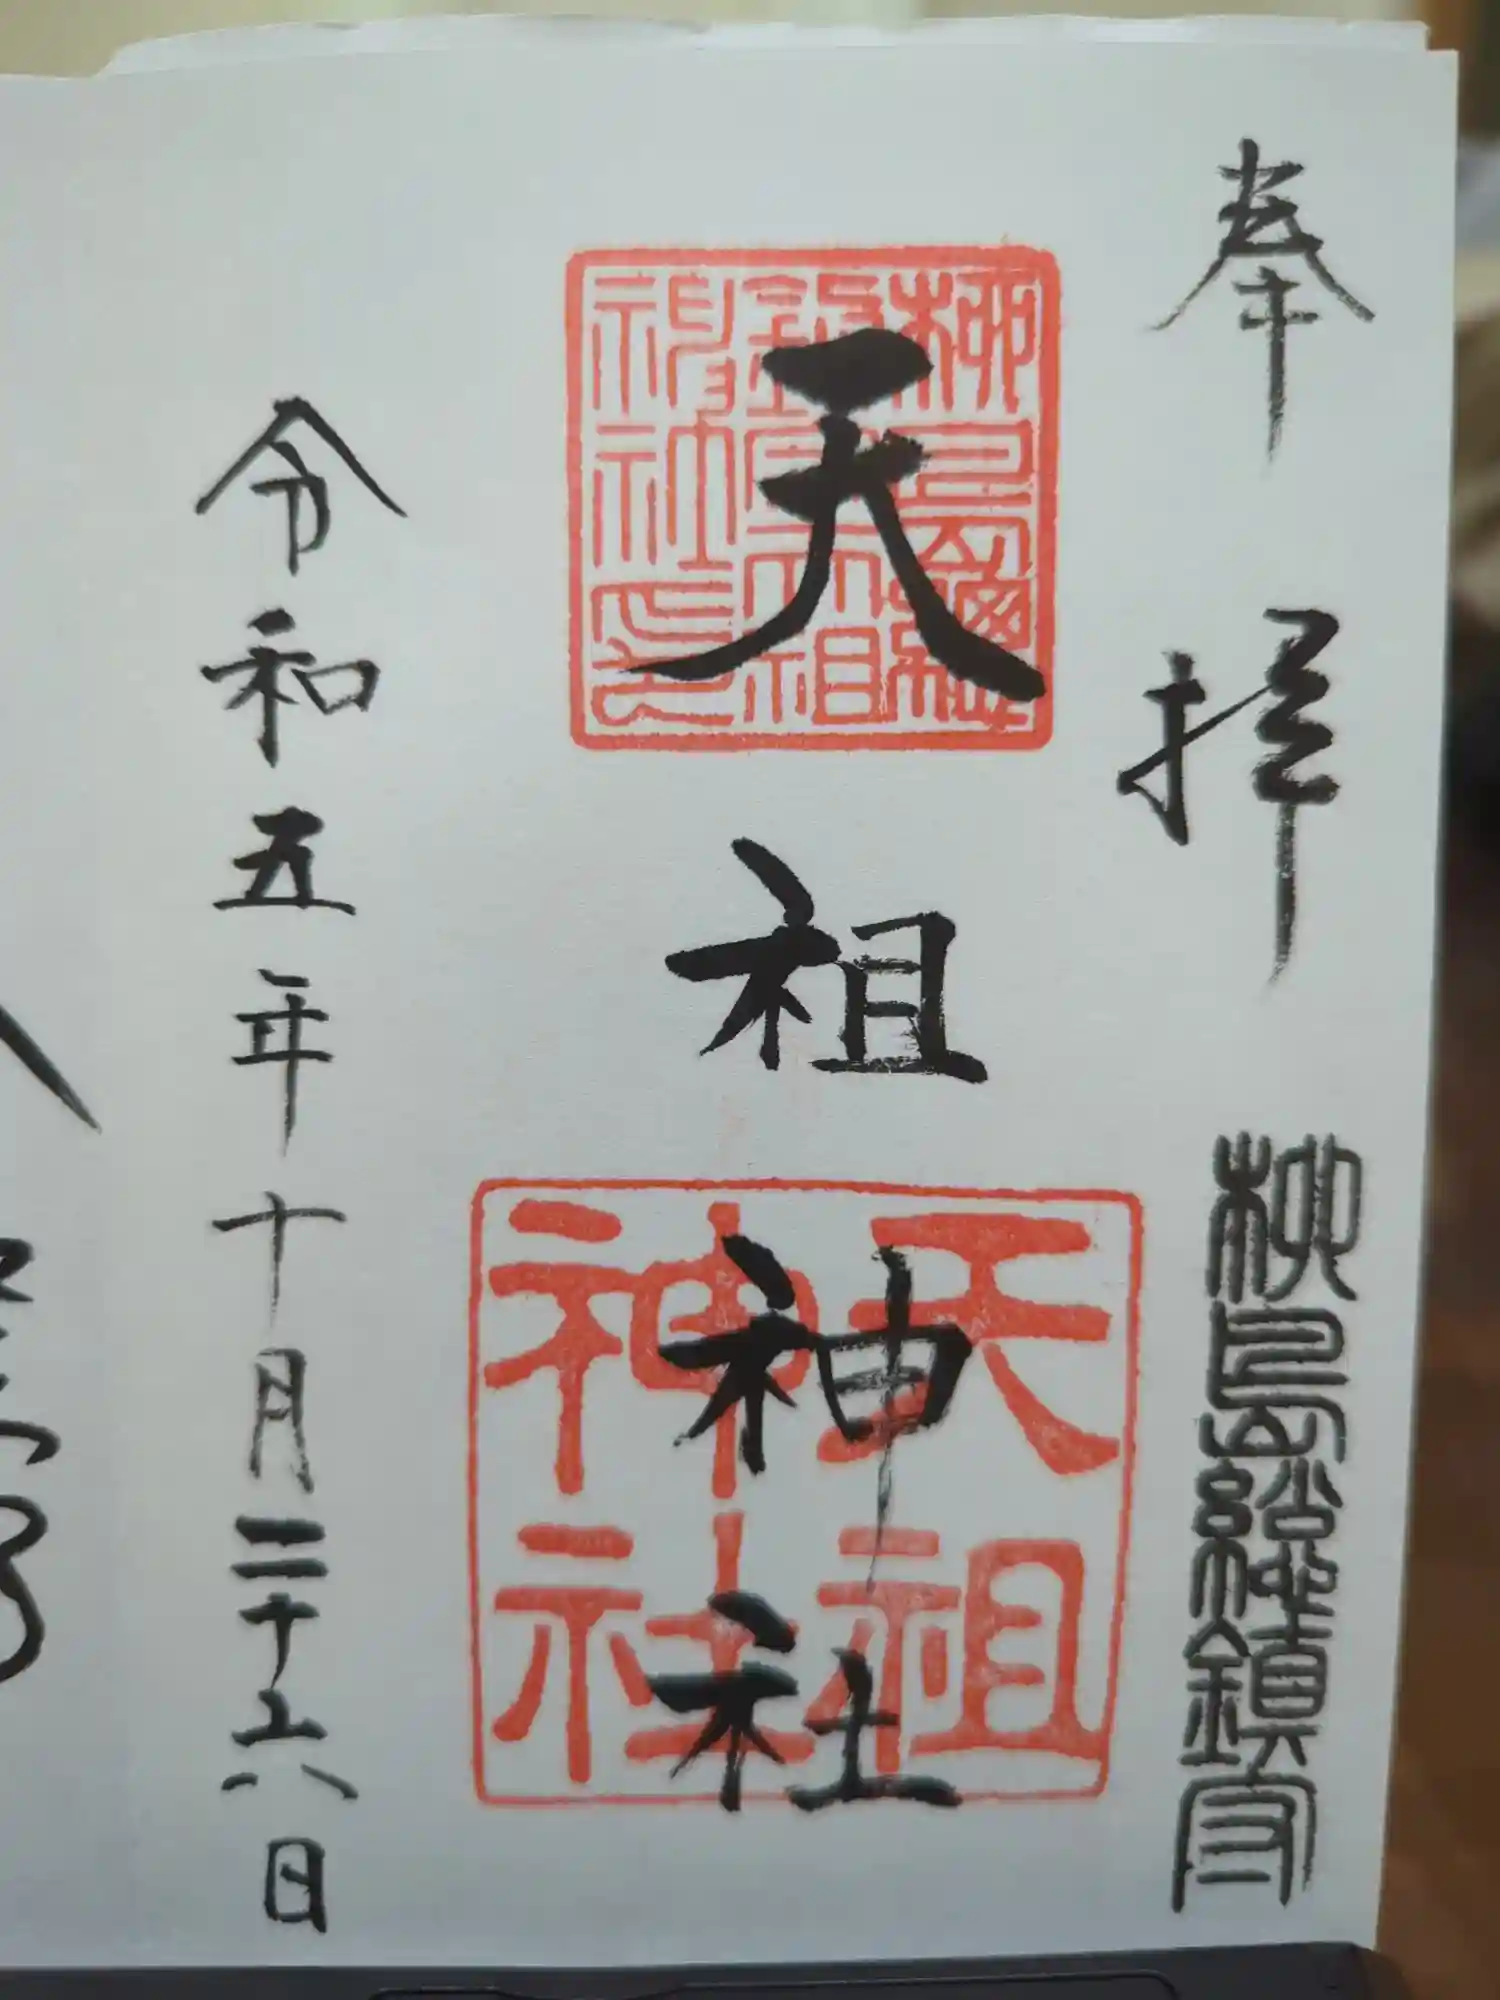 奉拝
柳島総鎮守
天祖神社
柳島総
鎮守天祖
神社印
天祖
神社
令和五年十月二十六日